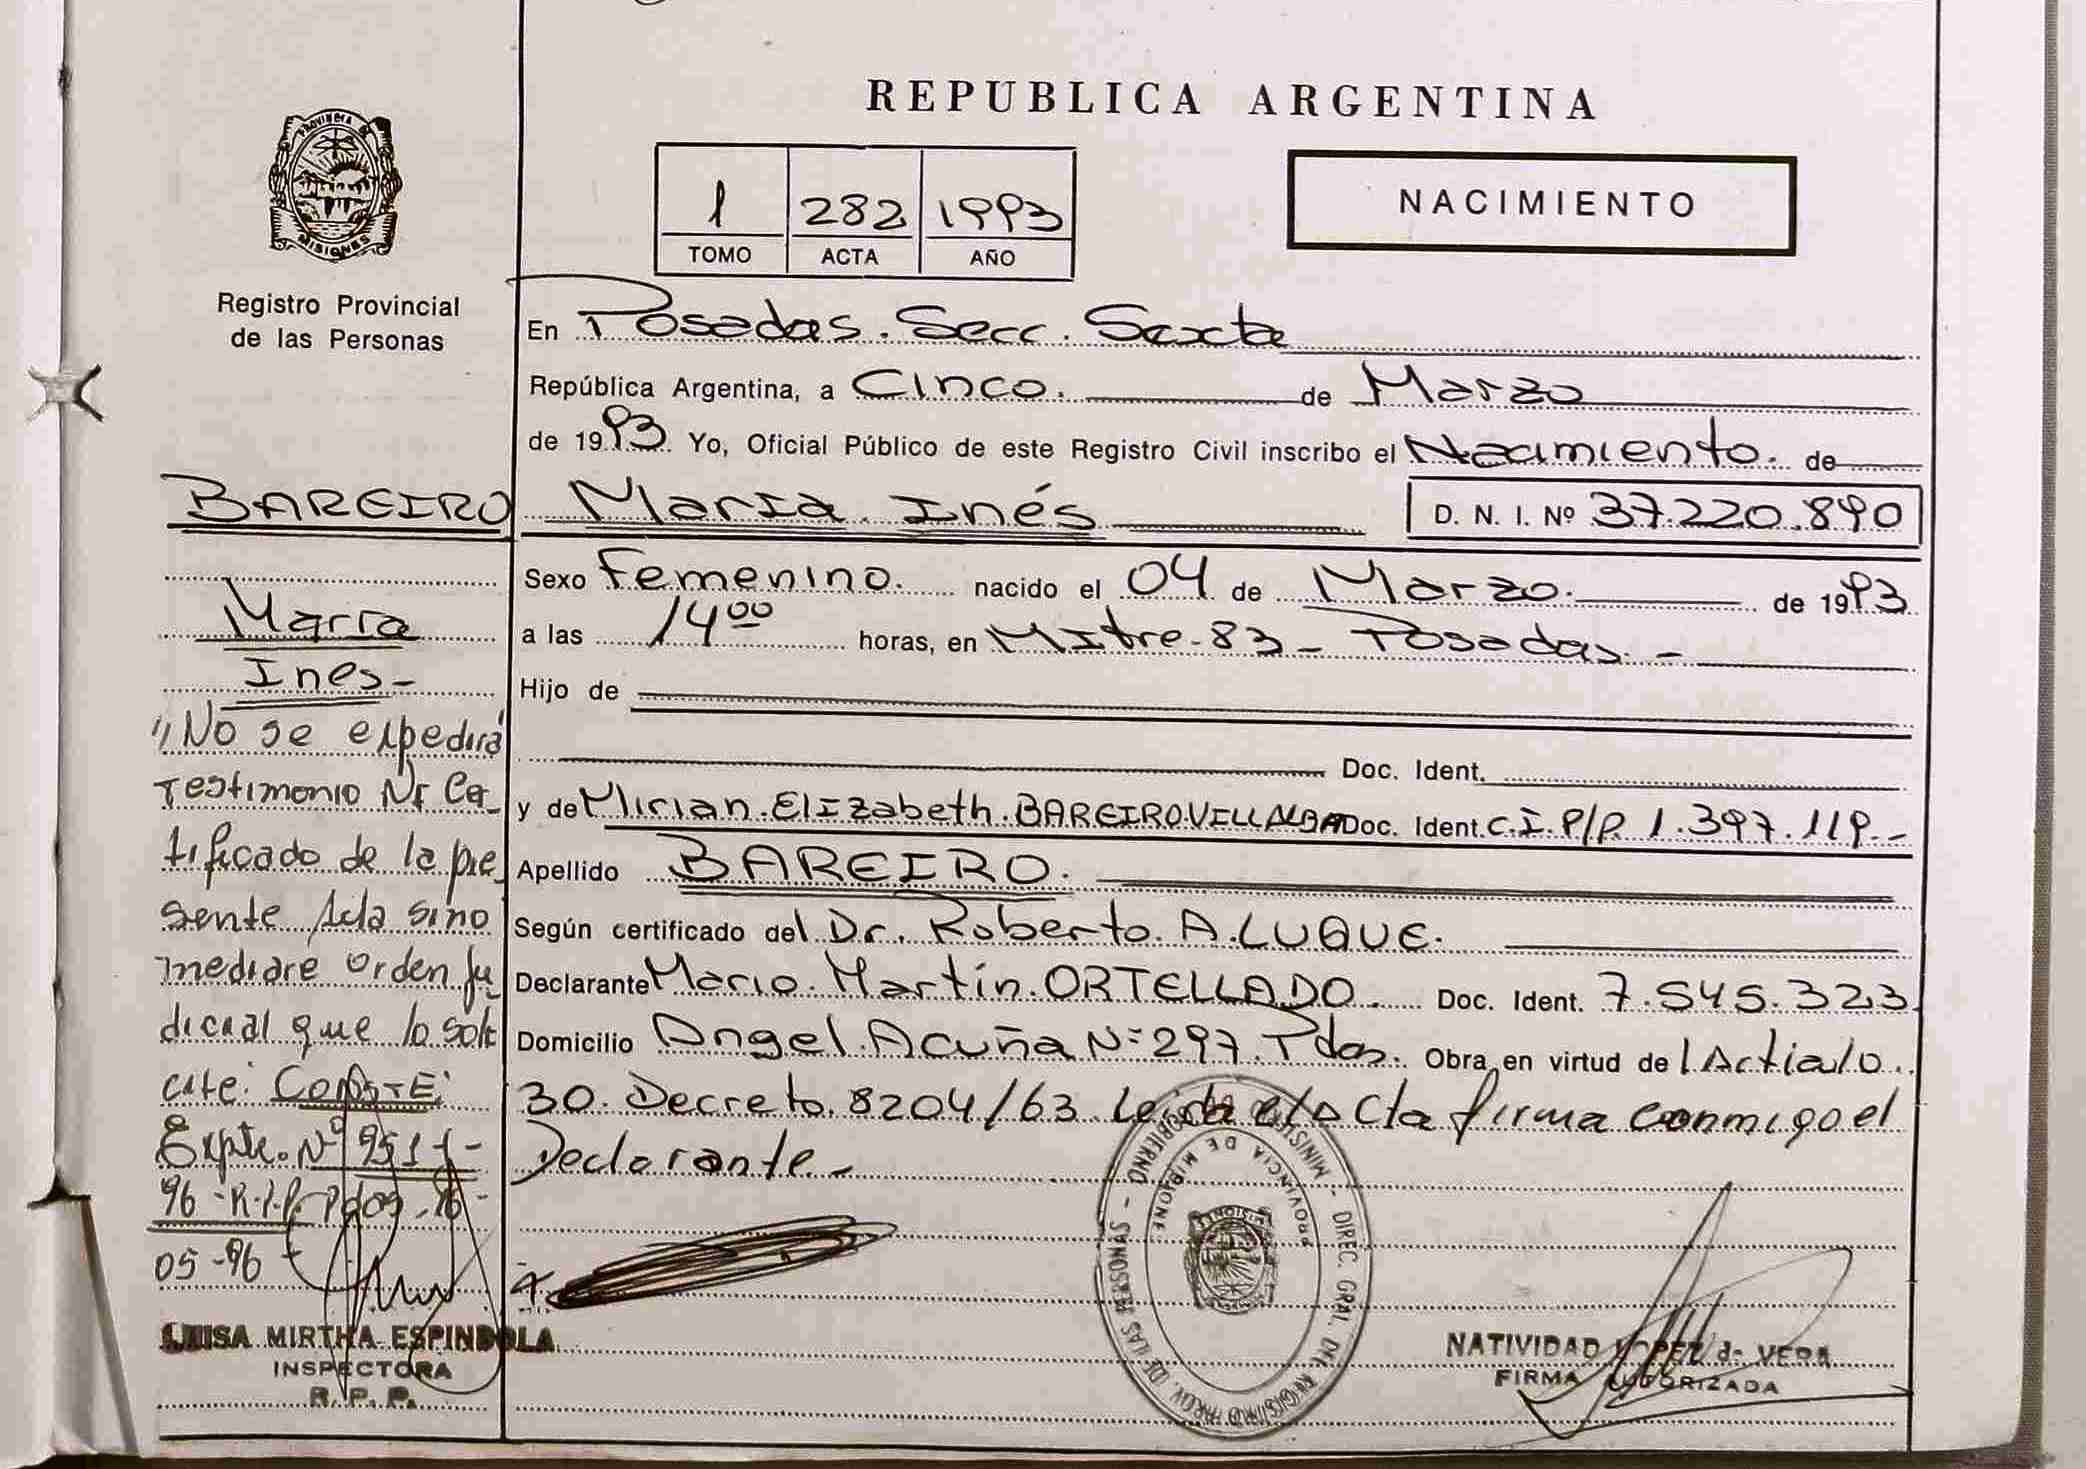 REPUBLICA ARGENTINA
PROVINCIA DE
MISIONES
Registro Provincial
de las Personas
1 282 1993
TOMO ACTA AÑO
NACIMIENTO
En Posadas. Secc. Sexta
República Argentina, a Cinco. de Marzo
de 1993 Yo, Oficial Público de este Registro Civil inscribo el Nacimiento. de
BAREIRO María Inés D. N. I. Nº 37.220.890
Sexo Femenino. nacido el 04 de Marzo. de 1993
a las 14⁰⁰ horas, en Mitre-83- Posadas.-
Hijo de
Doc. Ident.
y de Mirian Elizabeth BAREIRO VILLALBA Doc. Ident. C.I. P/P. 1.397.119.-
Apellido BAREIRO.
Según certificado del Dr. Roberto A. LUQUE.
Declarante Mario Martín ORTELLADO. Doc. Ident. 7.545.323
Domicilio Angel Acuña Nº 297. Pdas. Obra en virtud de l Artículo
30. Decreto 8204/63 Leida el Acta firma conmigo el
Declarante-
María
Ines-
"No se expedirá
Testimonio Ni Cer-
tificado de la pre-
sente Acta sino
mediare orden ju-
dicial que lo soli-
cite: CONSTE:
Expte. Nº 951
96-R.P.P. Pdas. 16-
05-96
LUISA MIRTHA ESPINDOLA
INSPECTORA
R. P. P.
MINISTERIO DE GOBIERNO - DIREC. GRAL. DEL REGISTRO PROV. DE LAS PERSONAS -
PROVINCIA DE MISIONES
NATIVIDAD LOPEZ de VERA
FIRMA AUTORIZADA